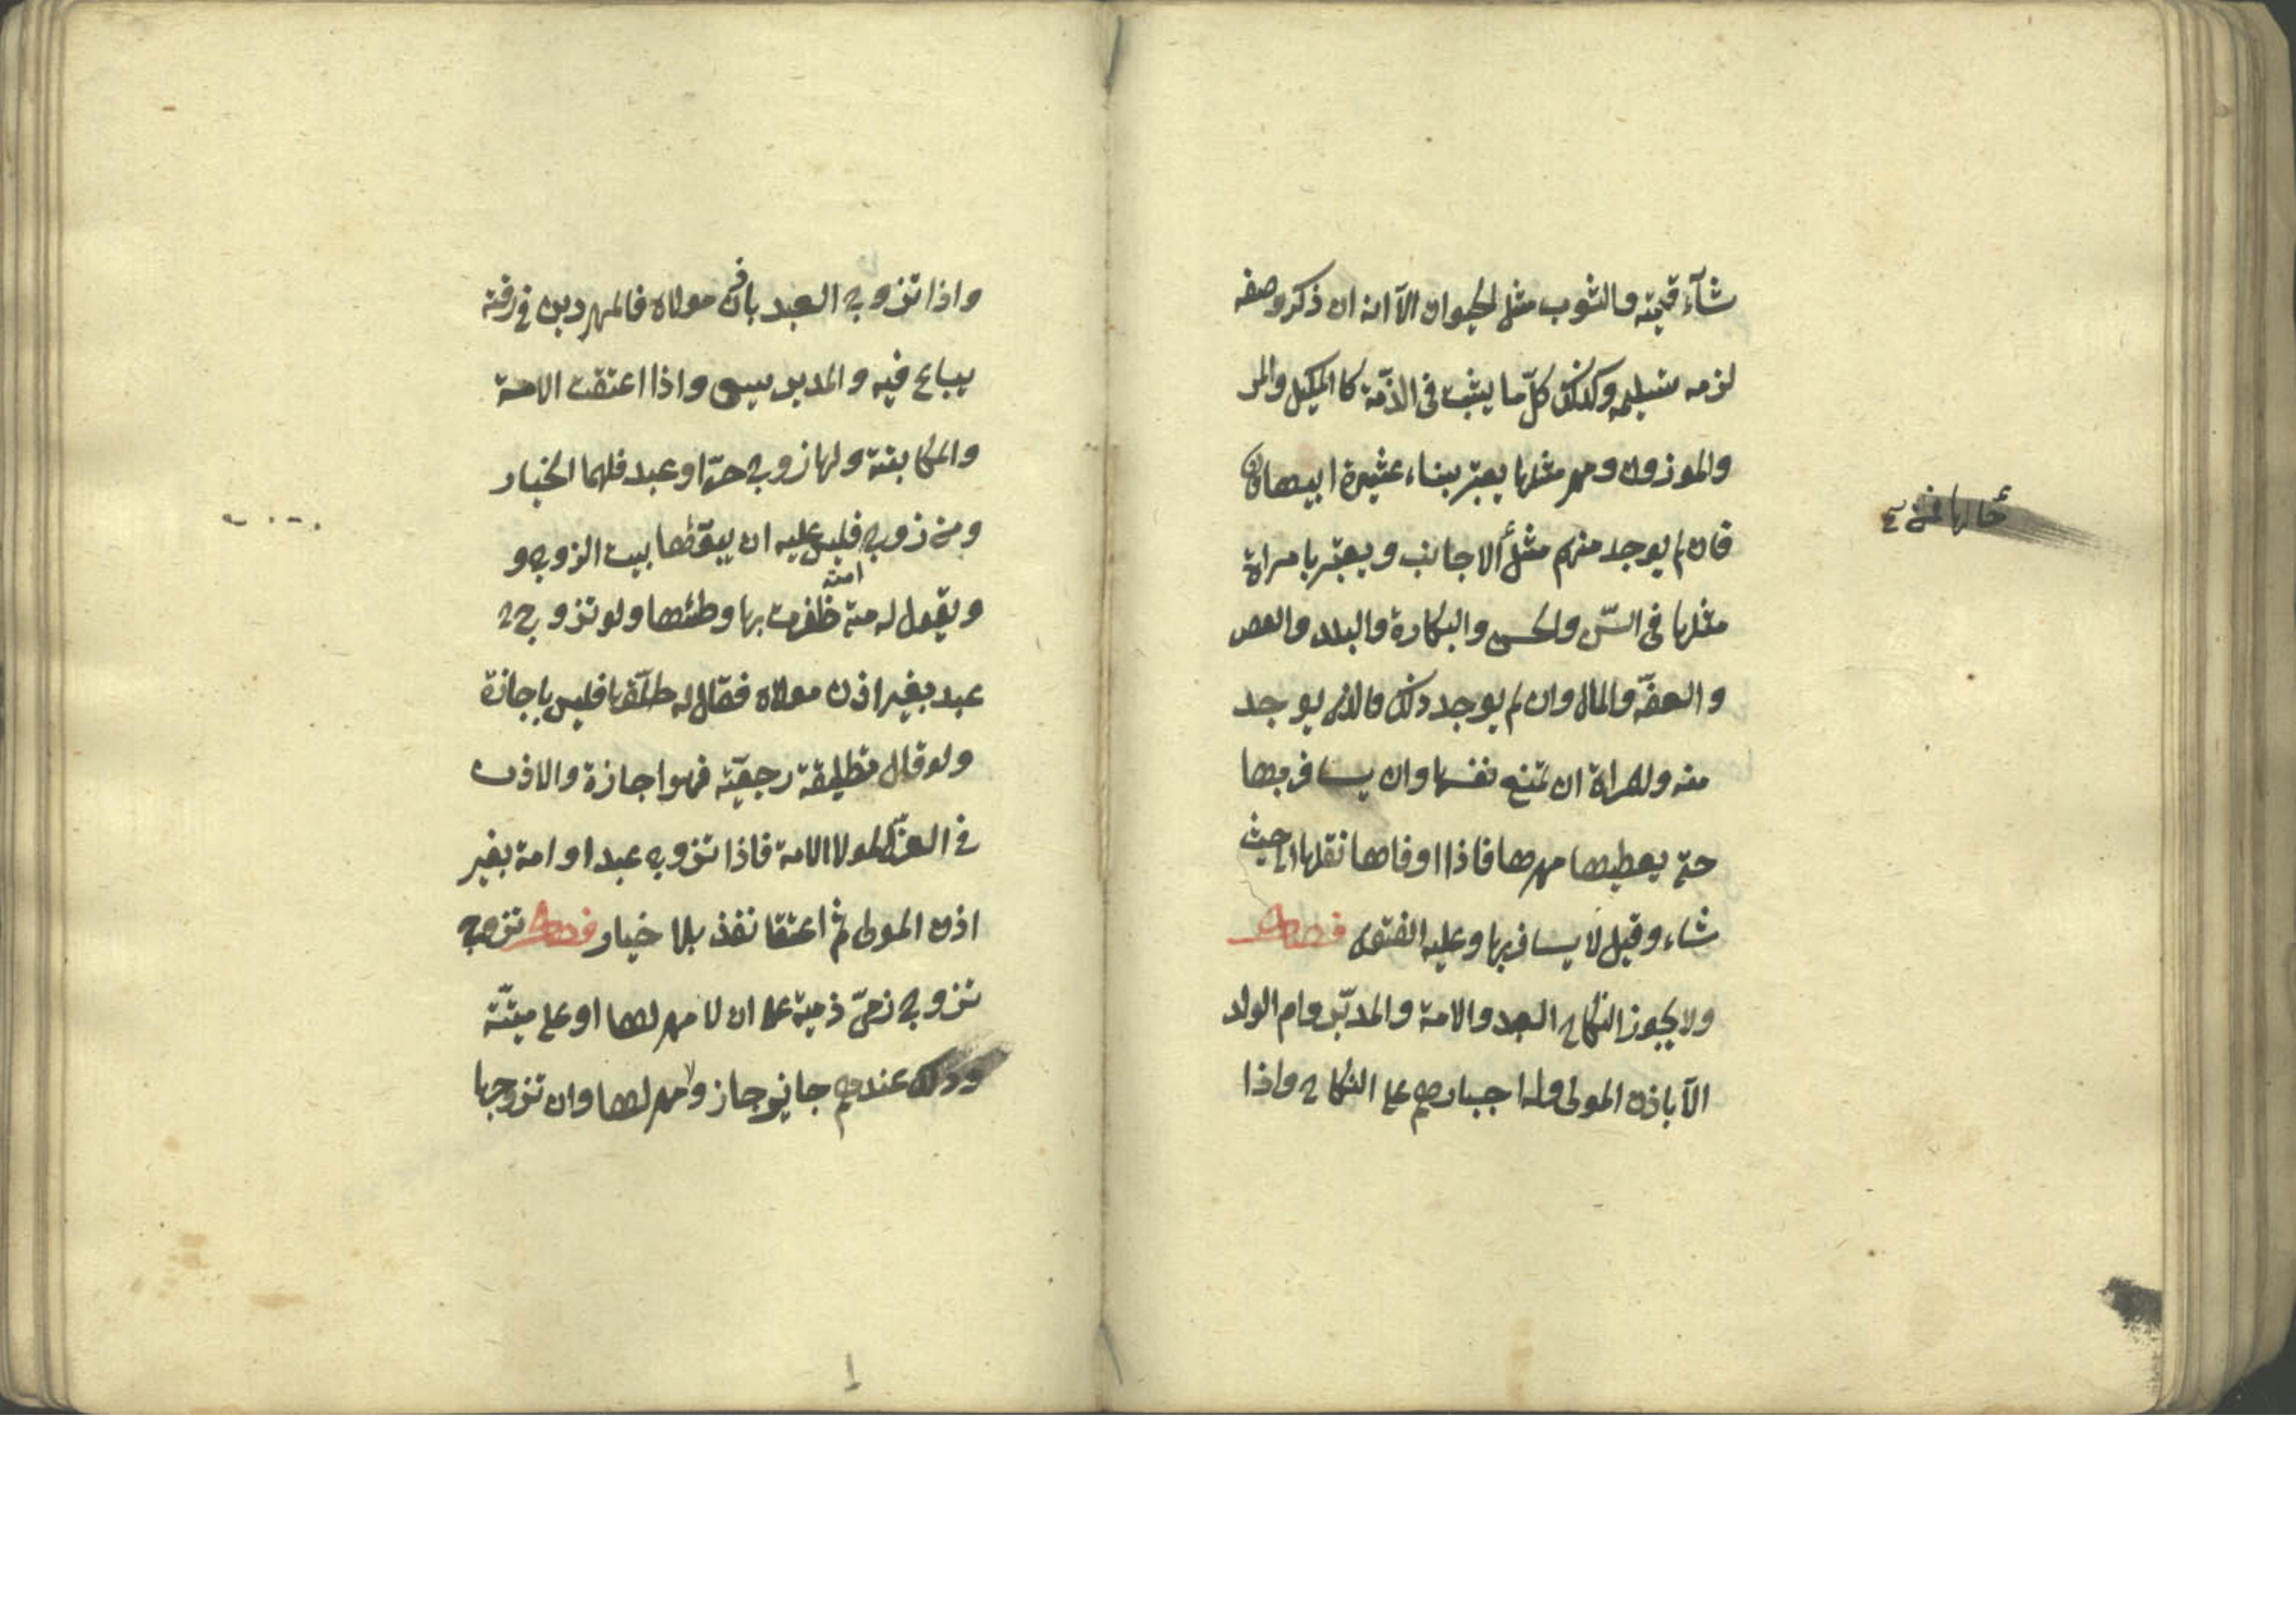 شآء قيمته والثوب مثل الحيوان الآ انه ان ذكر وصفه
لزمه تسليمه وكذلك كلّ ما يثبت فى الذمّة كا المكيل والمو
والموزون ومهر مثلها يعتبر بنساء عشيرة ابيها
فان لم يوجد منهم مثل الاجانب ويعتبر بامراة
مثلها فى السّن والحسن والبكارة والبلد والعصر
والعفّة والمال وان لم يوجد ذلك فالذى يوجد
منه وللمراة ان تمنع نفسها وان يسافر بها
حتى يعطيها مهرها فاذا اوفاها نقلها الى حيث
شاء وقيل لا يسافر بها وعليه الفتوى فصل
ولا يجوز النكاح العبد والامة والمدبّر وام الولد
الآ باذن المولى وله اجبارهم على النكاح واذا
حالها
واذا تزوج العبد باذن مولاه فالمهر دين فى رقبته
يباع فيه والمدبر يسعى واذا اعتقت الامة
والمكاتبة ولها زوج حرّ او عبد فلهما الخيار
ومن زوج امته فليس عليه ان يبوّئها بيت الزوج و
ويقول له متى ظفرت بها وطئها ولو تزوج
عبد بغير اذن مولاه فقال له طلّقها فليس باجازة
ولو قال تطليقة رجعيّة فهو اجازة والاذن
فى العزل لمولا الامة فاذا تزوج عبد او امة بغير
اذن المولى ثم اعتقا نفذ بلا خيار فصل تزوج
تزوج ذمىّ ذمية على ان لا مهر لها او على ميتّة
وذلك عندهم جايز جاز ولا مهر لها وان تزوجها